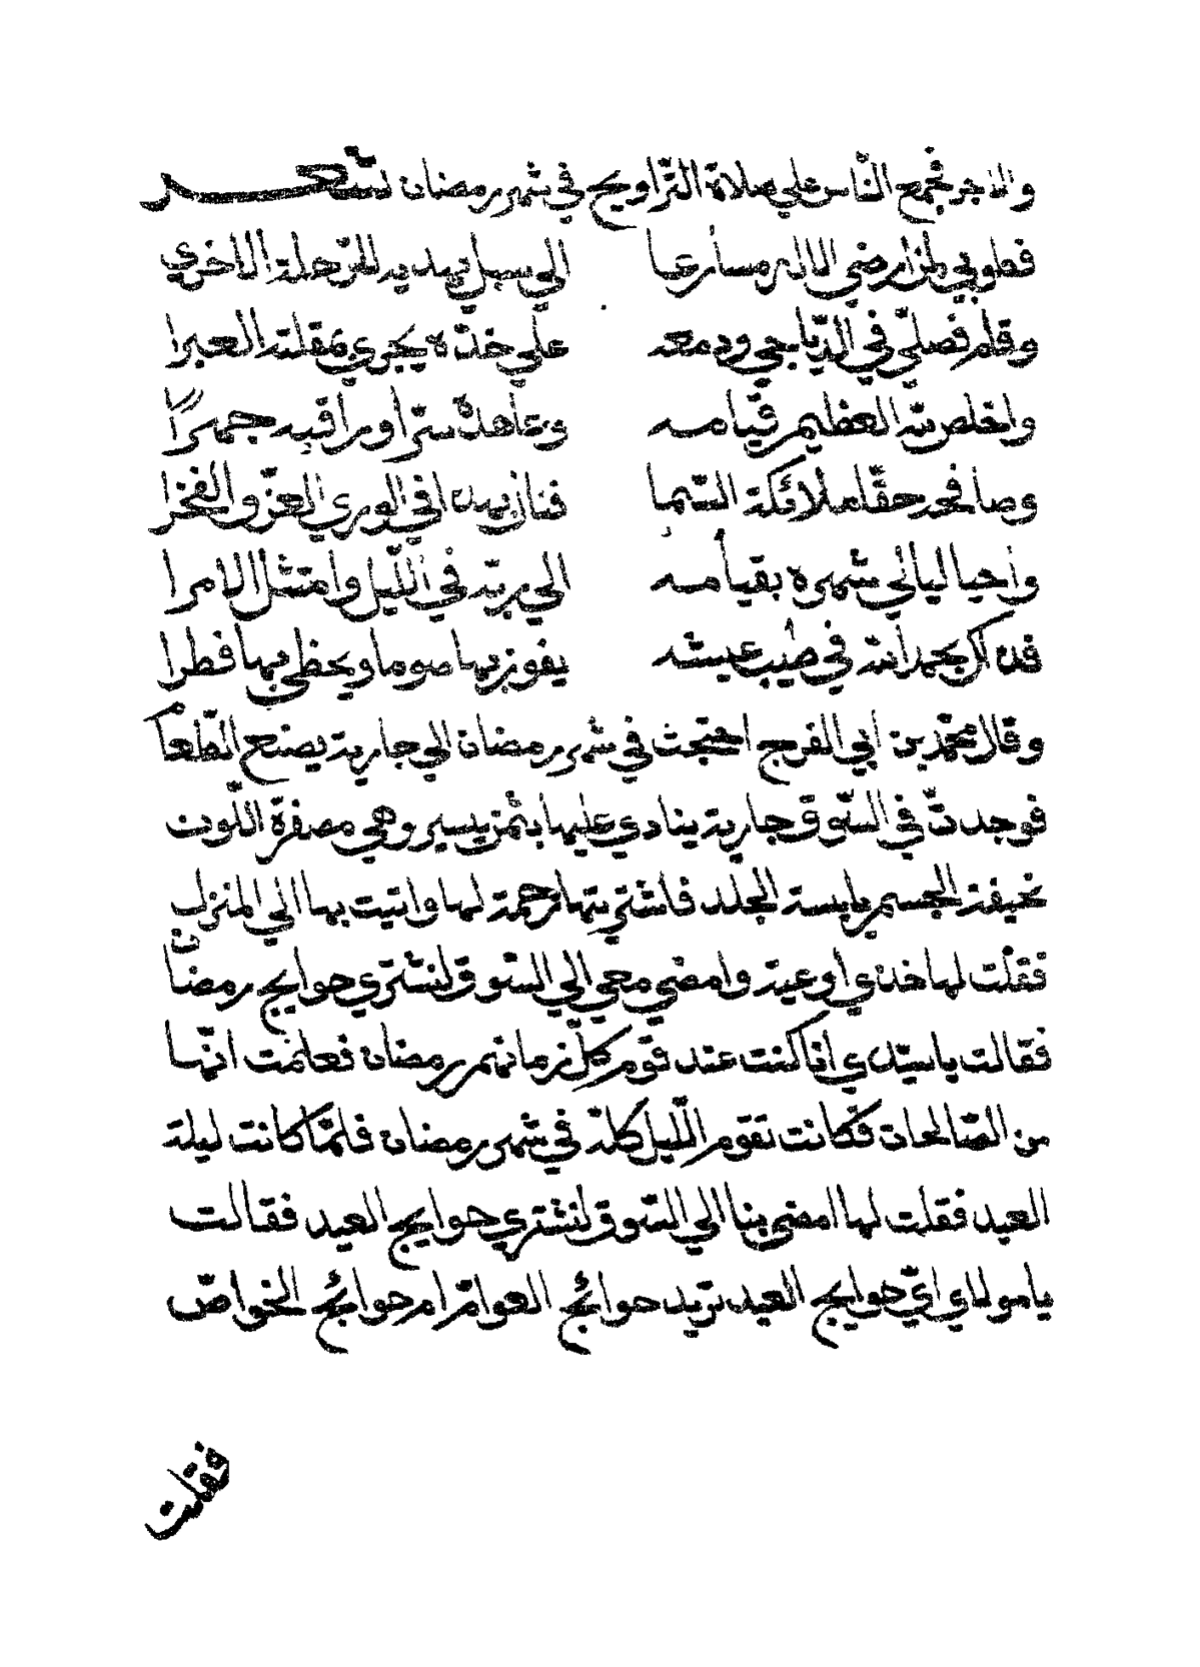 والاجر فجمع الناس علي صلاة التّراويح في شهر رمضان شعر
فطوبي لمن ارضي الاله مسارعا الي سبل يهديه للرّحلة الاخري
وقام فصلّي في الدّياجي ودمعه علي خدّه يجري بمقلته العبرا
واخلص لله العظيم قيامه وعاهده سرّا وراقبه جهرًا
وصافحه حقّا ملائكة السّما فنا زبهذا في الوري العزّ والفخرا
واحيا ليالي شهره بقيامه الي ربّه في اللّيل وامتثل الامرا
فذاك بحمد الله في طيب عيشه يفوز بها صوما ويحظي بها فطرا
وقال محمّد بن ابي الفرج احتجت في شهر رمضان الي جارية يصنع الطّعام
فوجدتّ في السّوق جارية ينادي عليها بثمن يسير وهي مصفرّة اللّون
نحيفة الجسم يابسة الجلد فاشتريتها رحمة لها واتيت بها الي المنزل
فقلت لها خذي اوعية وامضي معي الي السّوق لنشتري حوايج رمضان
فقالت ياسيّدي انا كنت عند قوم كلّ زمانهم رمضان فعلمت انّها
من الصّالحات فكانت تقوم اللّيل كلّه في شهر رمضان فلمّا كانت ليلة
العيد فقلت لها امضي بنا الي السّوق لنشتري حوايج العيد فقالت
يا مولاي ايّ حوايج العيد تريد حوائج العوامّ ام حوائج الخواصّ
فقلت